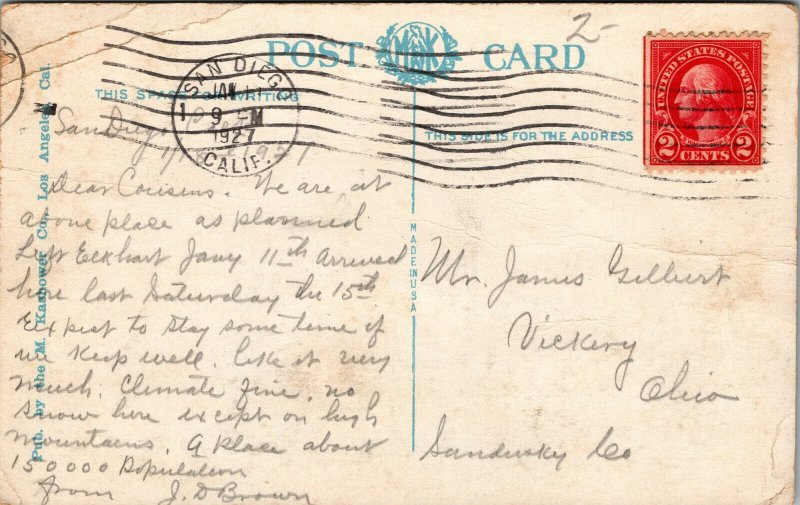 2-
POST CARD
MKK
UNITED STATES POSTAGE
2 CENTS 2
SAN DIEGO
JAN
9 - M
1927
CALIF.
THIS SPACE FOR WRITING
THIS SIDE IS FOR THE ADDRESS
MADE IN USA
Pub. by the M. Kashower Co., Los Angeles, Cal.
San Diego
Dear Cousins. We are at
above place as planned
Left Elkhart Jany 11th Arrived
here last Saturday the 15th
Expect to stay some time if
we keep well. like it very
much. Climate fine. no
snow here except on high
mountains. A place about
150000 Population
from J. D Brown
Mr. James Gilbert
Vickery
Ohio
Sandusky Co